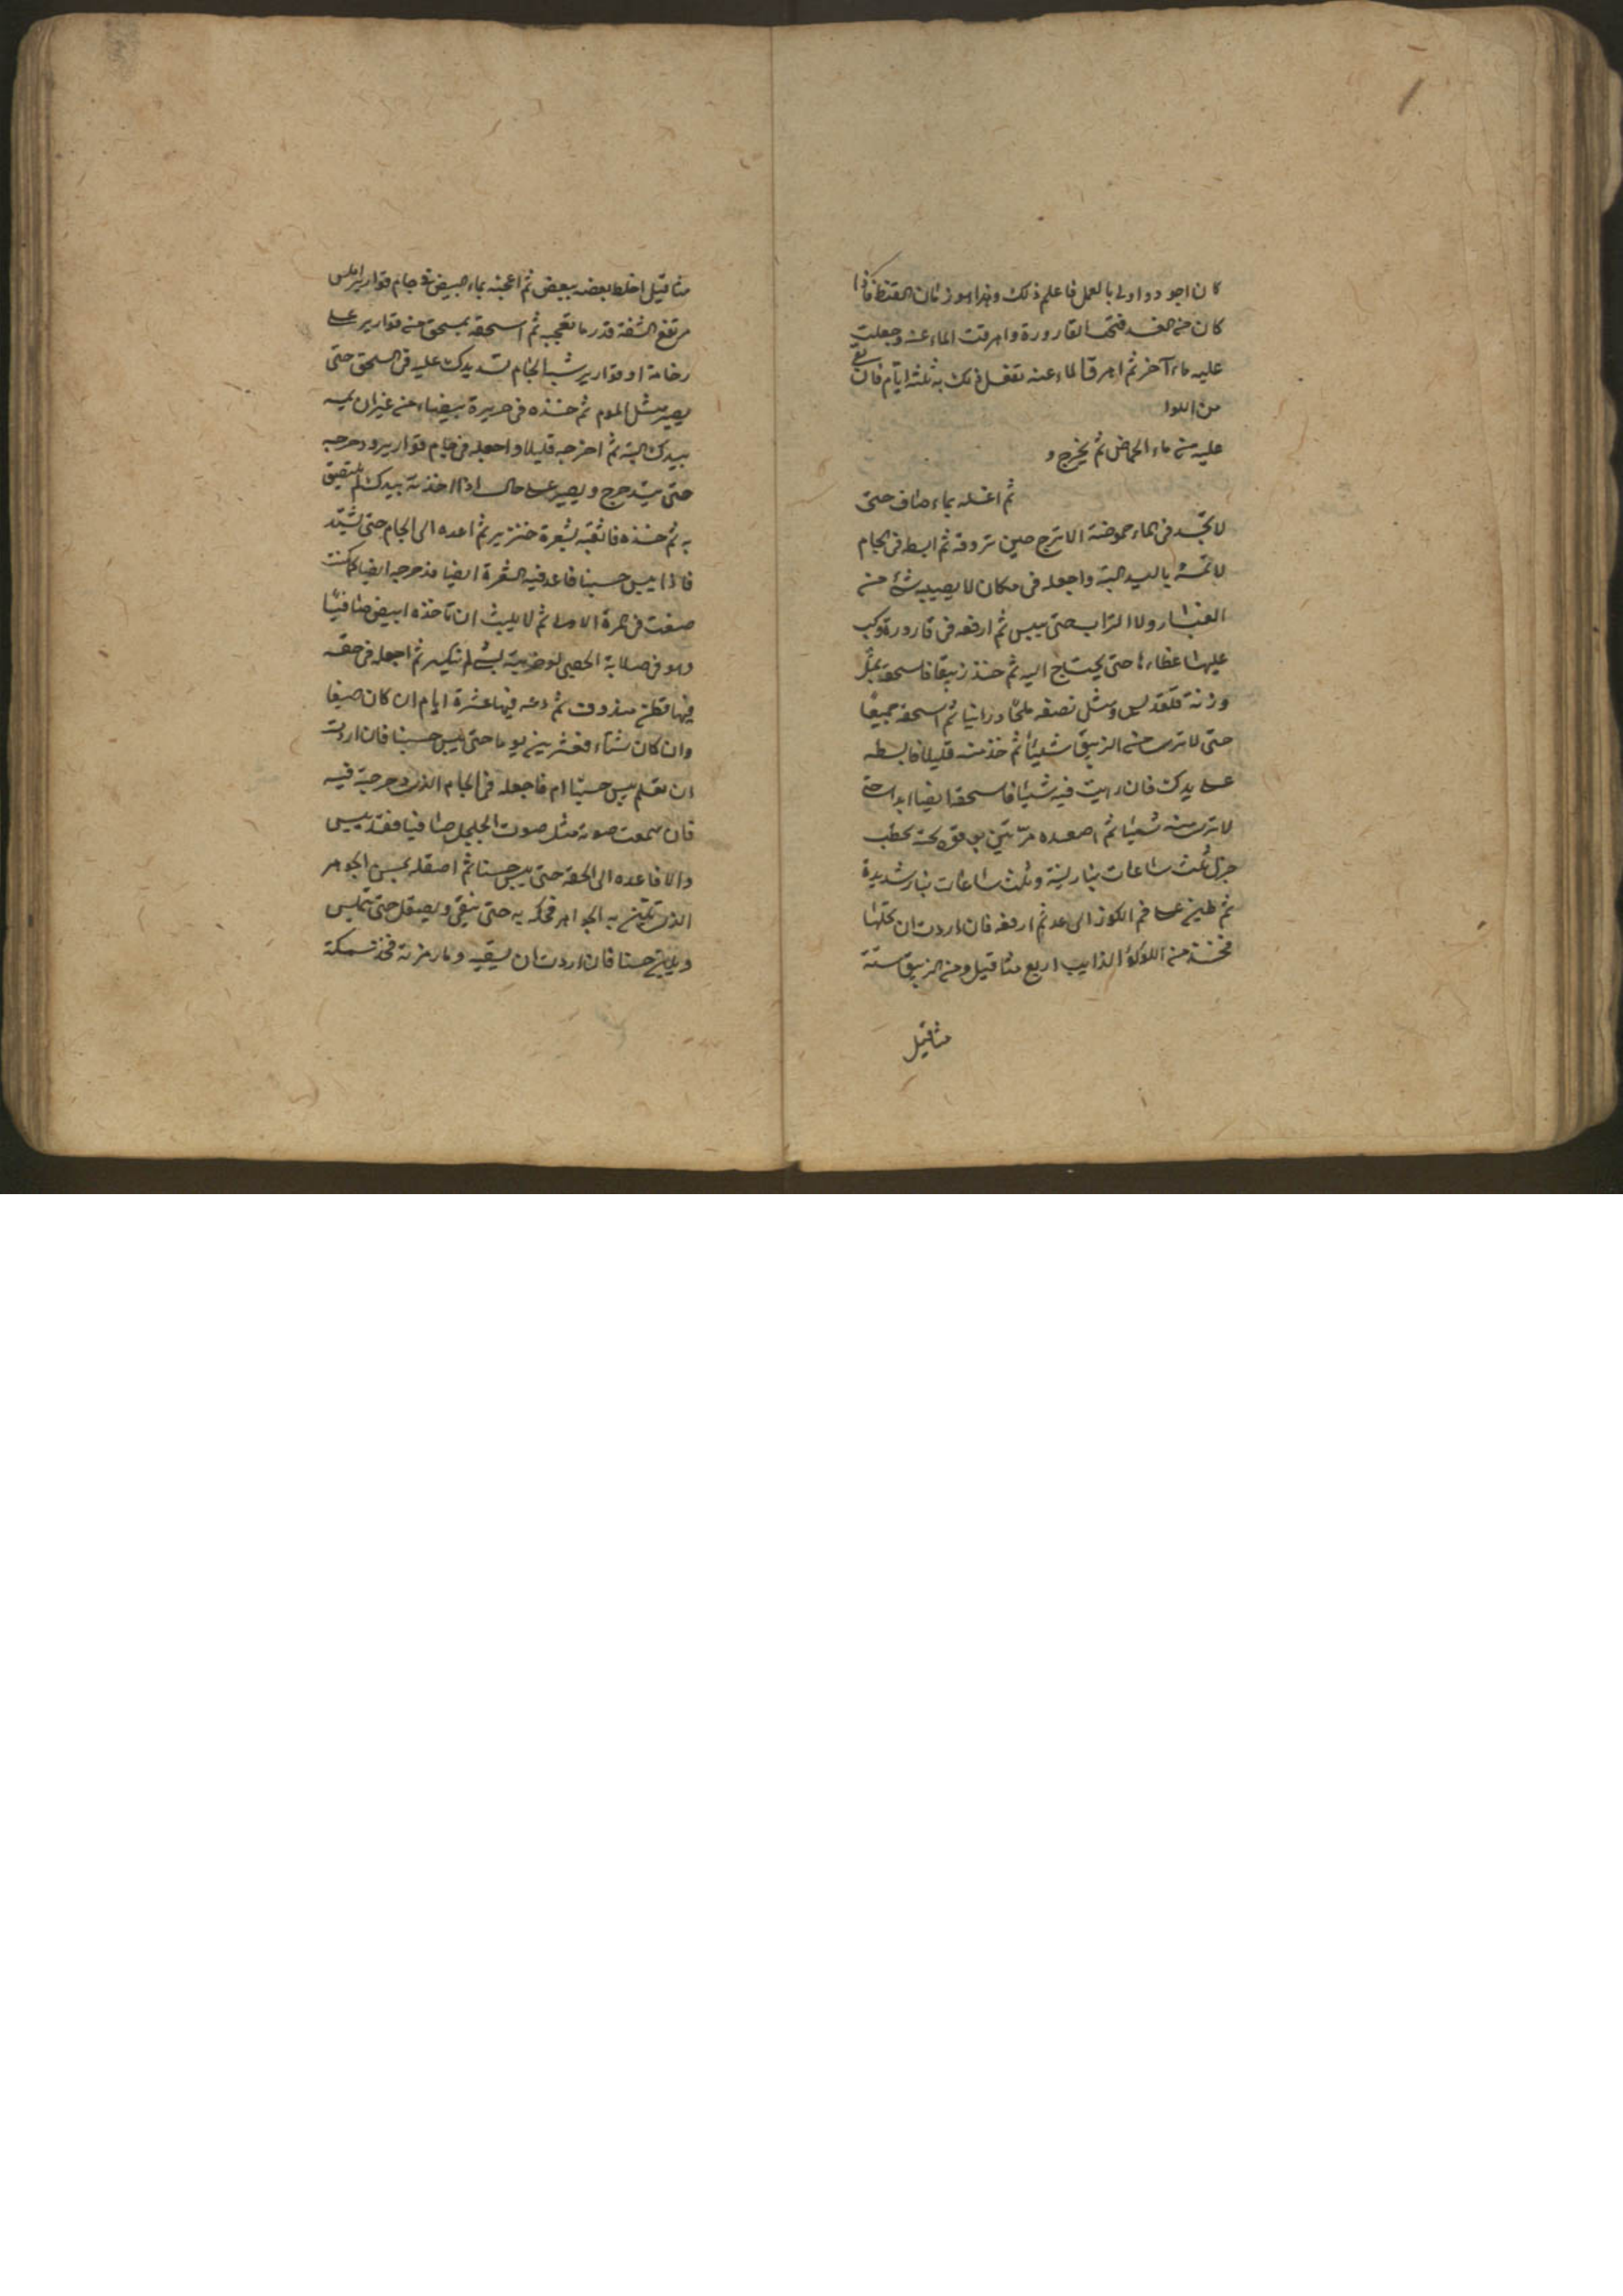 كان اجود واولى بالعمل فاعلم ذلك وهذا هو زمان القنظ فاذا
كان من الغد فتحت القارورة واهرقت الماء عنه وجعلت
عليه ماء آخر ثم اهرق الماء عنه تفعل ذلك به ثلثة ايام فان بقى
من اللوا
عليه من ماء الحماض ثم يخرج و
ثم اغسله بماء صاف حتى
لا تجد فى الماء حموضة الاترج حين تذوقه ثم ابسطه فى الجام
لا تمسه باليد البتة واجعله فى مكان لا يصيبه شئ من
الغبار ولا التراب حتى ييبس ثم ارفعه فى قارورة وركب
عليها غطاءها حتى يحتاج اليه ثم خذ زيبقا فاسحقه بمثل
وزنه قلقديس ومثل نصفه ملحا درانيا ثم اسحقه جميعا
حتى لا ترى من الزيبق شيئا ثم خذ منه قليلا فابسطه
على يدك فان رايت فيه شيئا فاسحقه ايضا ابدا حتى
لا ترى منه شيئا ثم اصعده مرتين بوقود تحته بحطب
جزل ثلث ساعات بنار لينة وثلث ساعات بنار شديدة
ثم طين على فم الكوز الى غد ثم ارفعه فان اردت ان تحلها
فخذ من اللؤلؤ الذايب اربع مثاقيل ومن الزيبق ستة
مثاقيل
مثاقيل اخلط بعضه ببعض ثم اعجنه بماء البيض فى جام قوارير املس
مرتفع الشفة قدر ما تعجبه ثم اسحقه بمسحق من قوارير على
رخامة او قوارير شبه الجام تشد يدك عليه فى السحق حتى
يصير مثل الموم ثم خذه فى حريرة بيضاء من غير ان تمسه
بيدك البتة ثم اخرجه قليلا واجعله فى جام قوارير ودحرجه
حتى يتدحرج ويصير على حال اذا اخذته بيدك لم يلتصق
به ثم خذه فاثقبه بشعرة خنزير ثم اعده الى الجام حتى يشتد
فاذا يبس حسنا فاعد فيه الشعرة ايضا ودحرجه ايضا كما كنت
صنعت فى المرة الاولى ثم لا يلبث ان تاخذه ابيض صافيا
وهو فى صلابة الحصى لو ضربته بشئ لم ينكسر ثم اجعله فى حقه
فيها قطن مندوف ثم دعه فيها عشرة ايام ان كان صيفا
وان كان شتاء فعشرين يوما حتى ييبس حسنا فان اردت
ان تعلم يبس حسنا ام لا فاجعله فى الجام الذى دحرجته فيه
فان سمعت صوته مثل صوت الجلجل صافيا فقد يبس
والا فاعده الى الحقة حتى ييبس حسنا ثم اصقله بمسن الجوهر
الذى به الجواهر فحكه به حتى ينقى ويصقل حتى يتملس
حسنا فان اردت ان تسقيه فخذ سمكة